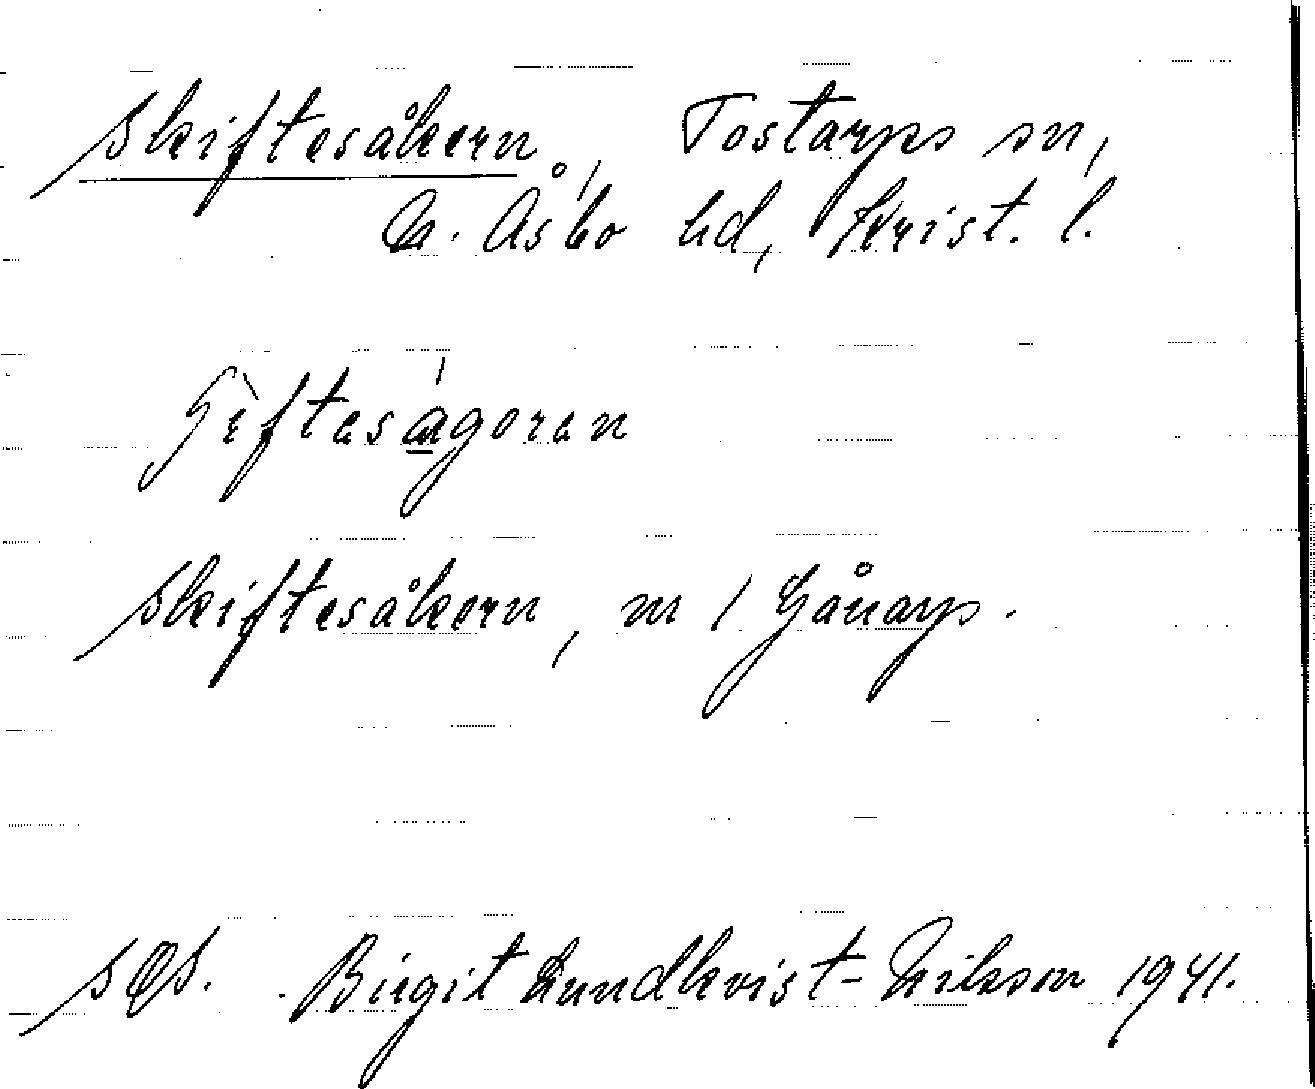 Skiftesåkern, Tostarps sn,
N. Åsbo hd, Krist. l.
Skiftesåkern, m / Gånarp.
SOS. Birgit Lundkvist-Nilsson 1941.